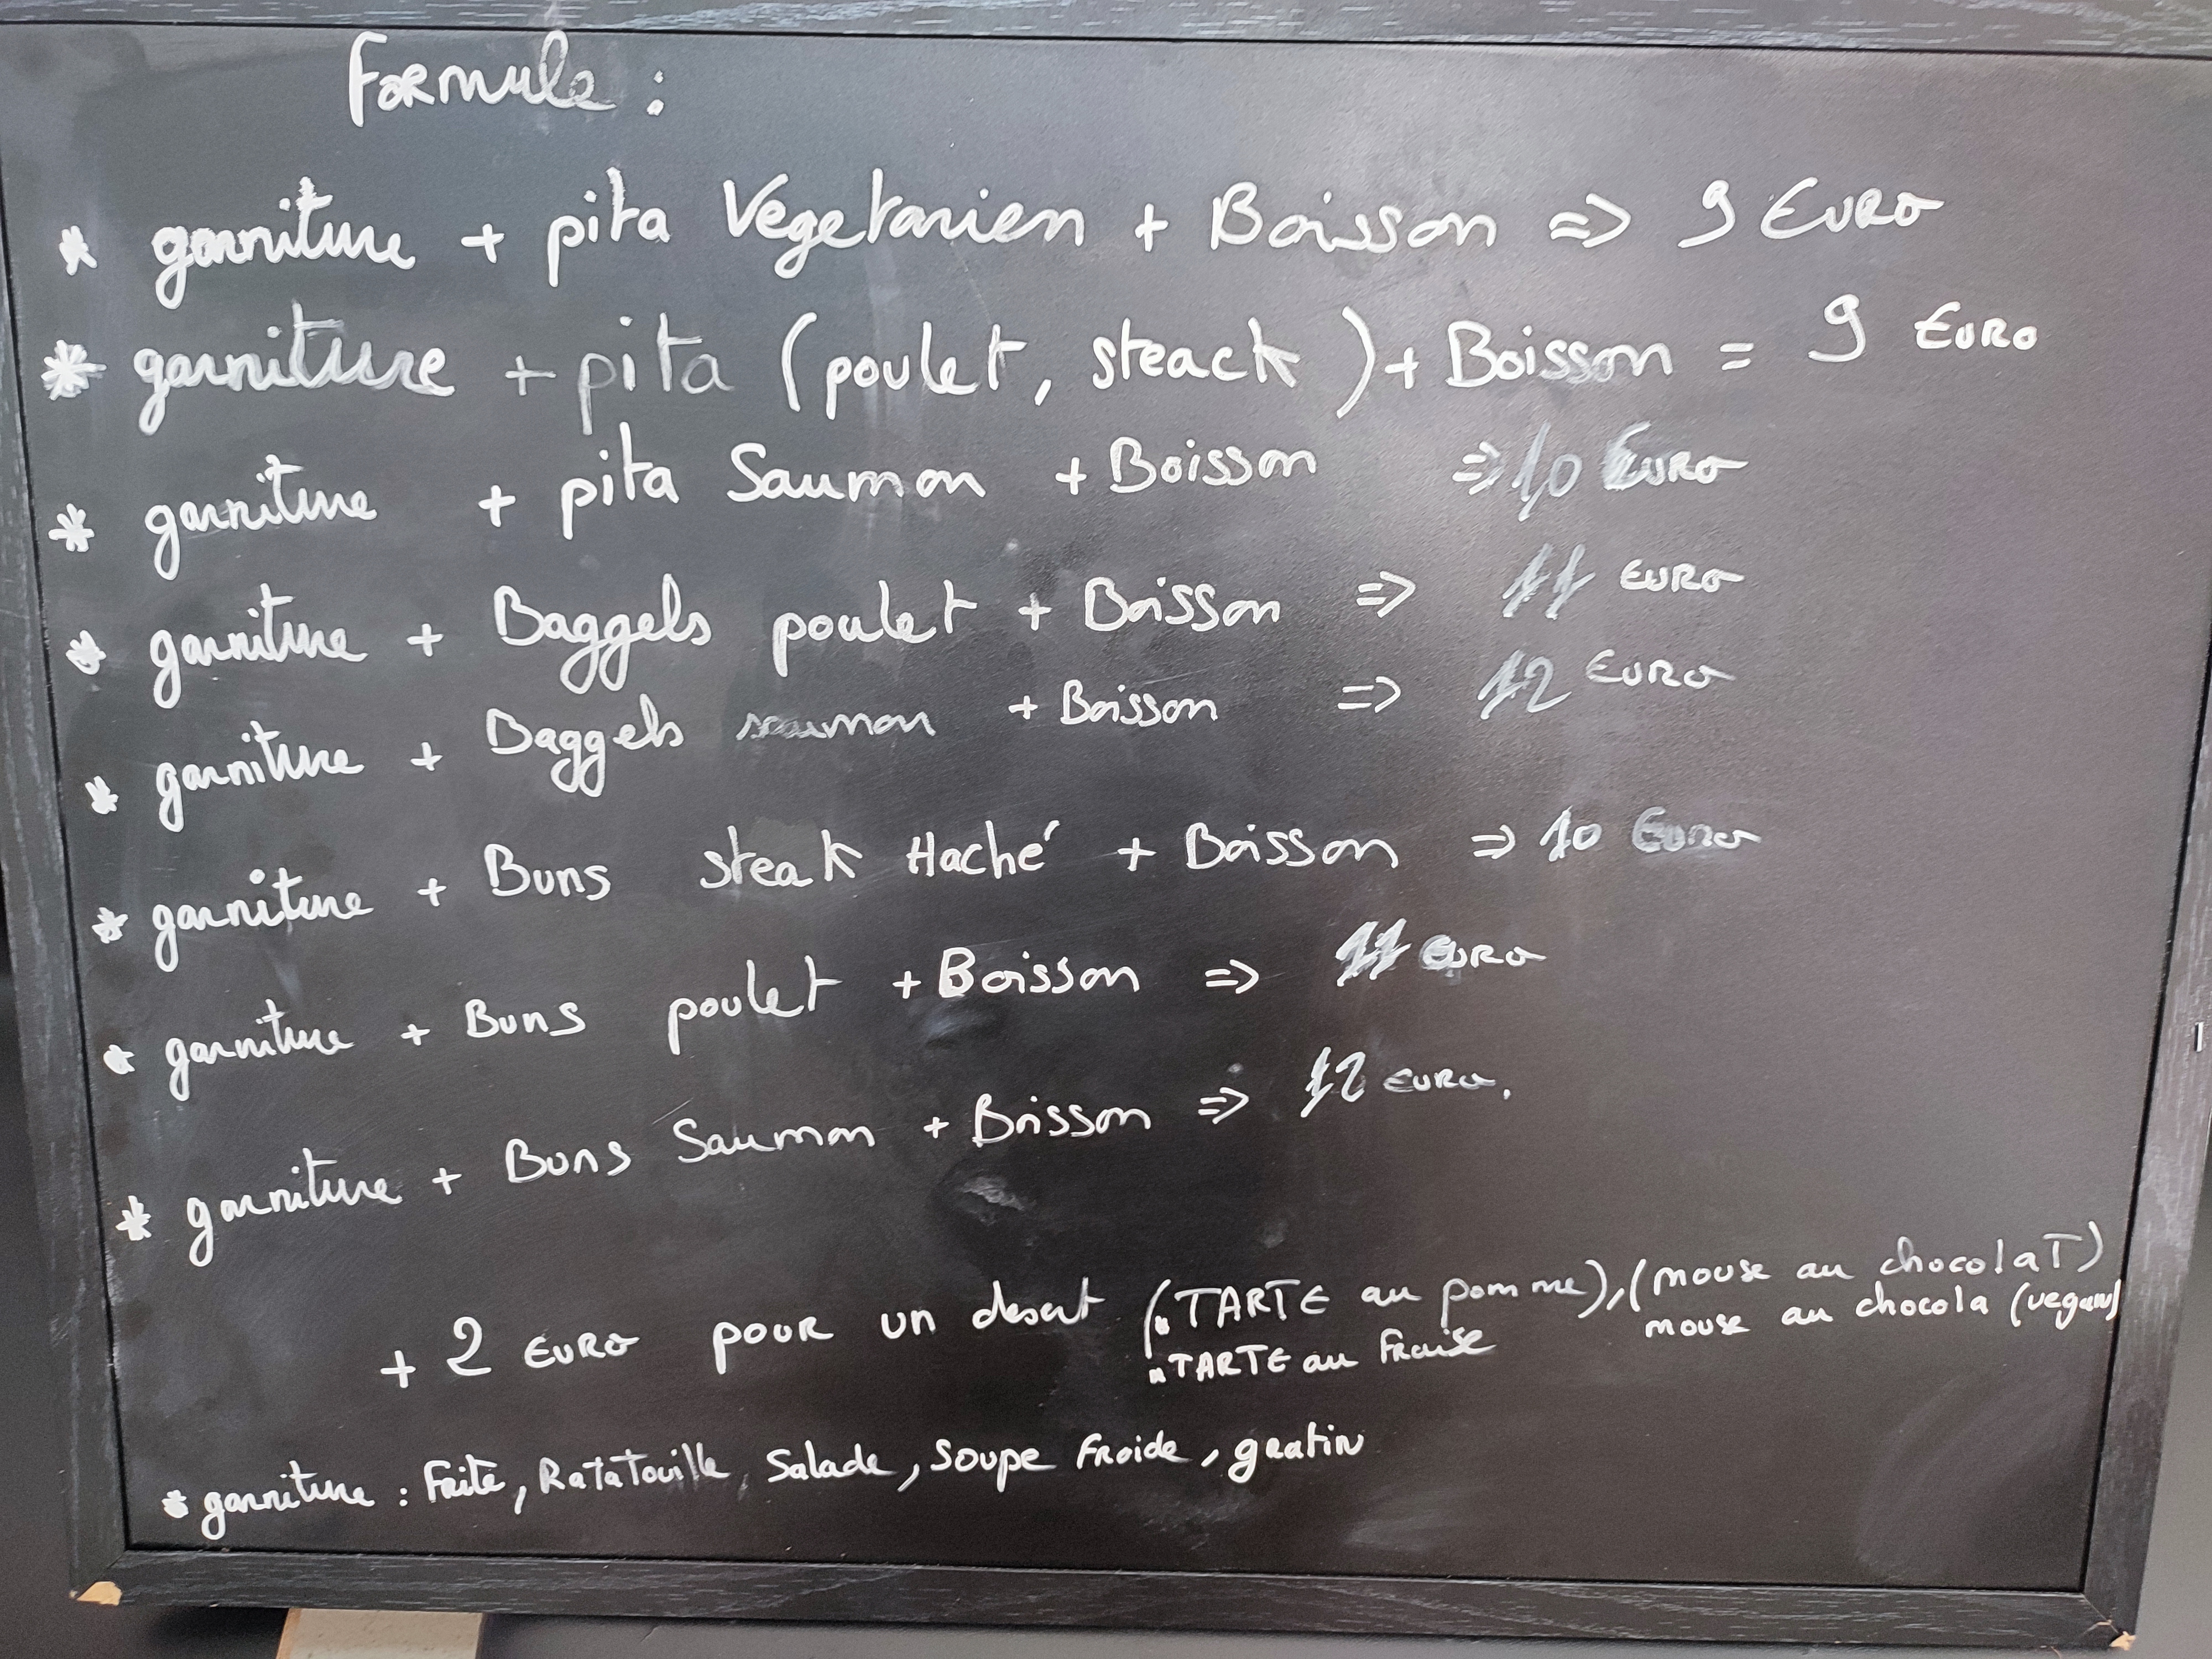 Formule :
* garniture + pita Vegetarien + Boisson => 9 Euro
* garniture + pita (poulet, steack) + Boisson = 9 Euro
* garniture + pita Saumon + Boisson => 10 Euro
* garniture + Baggels poulet + Boisson => 11 Euro
* garniture + Baggels saumon + Boisson => 12 Euro
* garniture + Buns steak Haché + Boisson => 10 Euro
* garniture + Buns poulet + Boisson => 11 Euro
* garniture + Buns Saumon + Boisson => 12 Euro.
+ 2 Euro pour un desert (TARTE au pomme), (mouse au chocolaT)
TARTE au Fraise mouse au chocola (vegan)
* garniture : Frite, RataTouille, Salade, Soupe Froide, gratin